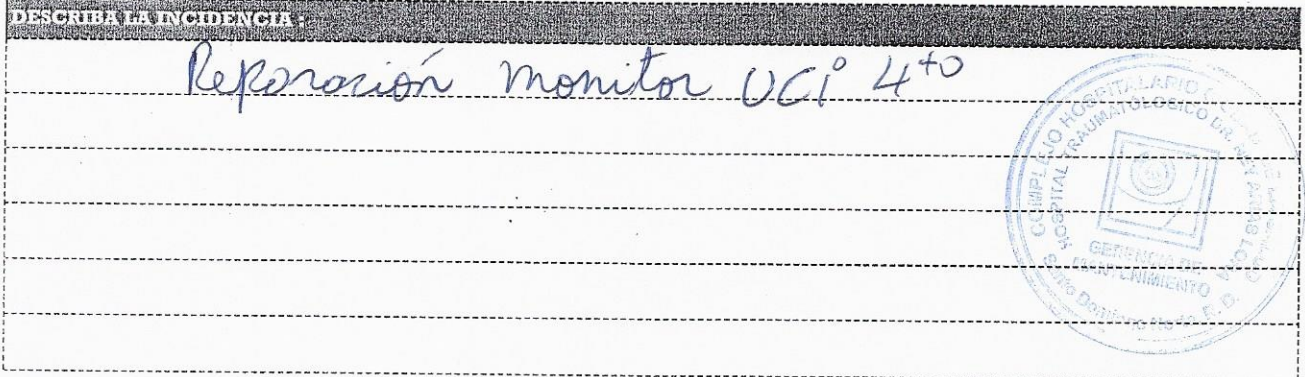 DESCRIBA LA INCIDENCIA :
Reparación monitor UCi 4to
COMPLEJO HOSPITALARIO
HOSPITAL TRAUMATOLOGICO DR. NEY ARIAS LORA
GERENCIA DE
MANTENIMIENTO
Santo Domingo Norte, R. D.